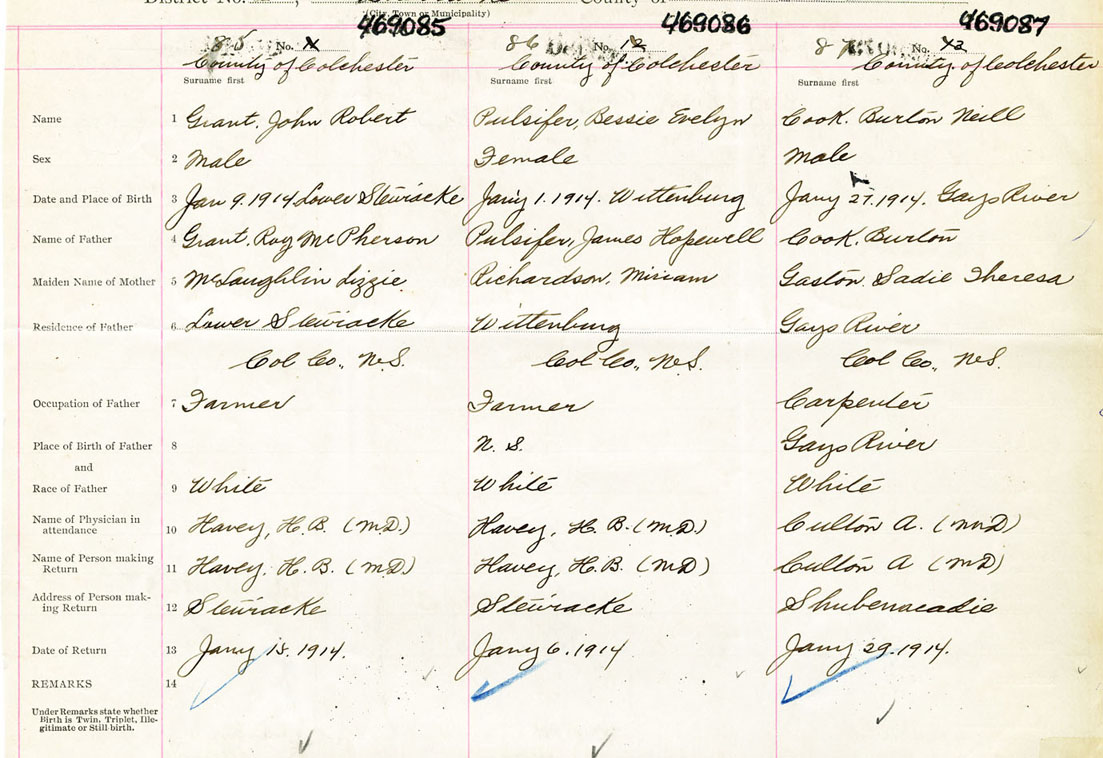 District No. County of
(City, Town or Municipality)
469085 469086 469087
85 No. 86 No. 87 No.
County of Colchester County of Colchester County of Colchester
Surname first Surname first Surname first
Name 1 Grant. John Robert Pulsifer, Bessie Evelyn Cook. Burton Neill
Sex 2 Male Female Male
Date and Place of Birth 3 Jan 9. 1914 Lower Stewiacke Jany 1. 1914. Wittenburg Jany 27. 1914. Gays River
Name of Father 4 Grant. Roy McPherson Pulsifer, James Hopewell Cook. Burton
Maiden Name of Mother 5 McLaughlin Lizzie Richardson, Miriam Gaston Sadie Theresa
Residence of Father 6 Lower Stewiacke Wittenburg Gays River
Col Co., N.S. Col Co., N.S. Col Co., N.S.
Occupation of Father 7 Farmer Farmer Carpenter
Place of Birth of Father 8 N. S. Gays River
and
Race of Father 9 White White White
Name of Physician in
attendance 10 Havey, H. B. (M.D.) Havey, H. B. (M.D) Culton A. (M.D)
Name of Person making
Return 11 Havey. H. B. (M.D) Havey, H. B. (M.D) Culton A (M.D)
Address of Person mak-
ing Return 12 Stewiacke Stewiacke Shubenacadie
Date of Return 13 Jany 15. 1914. Jany 6. 1914 Jany 29. 1914.
REMARKS 14
Under Remarks state whether
Birth is Twin, Triplet, Ille-
gitimate or Still-birth.